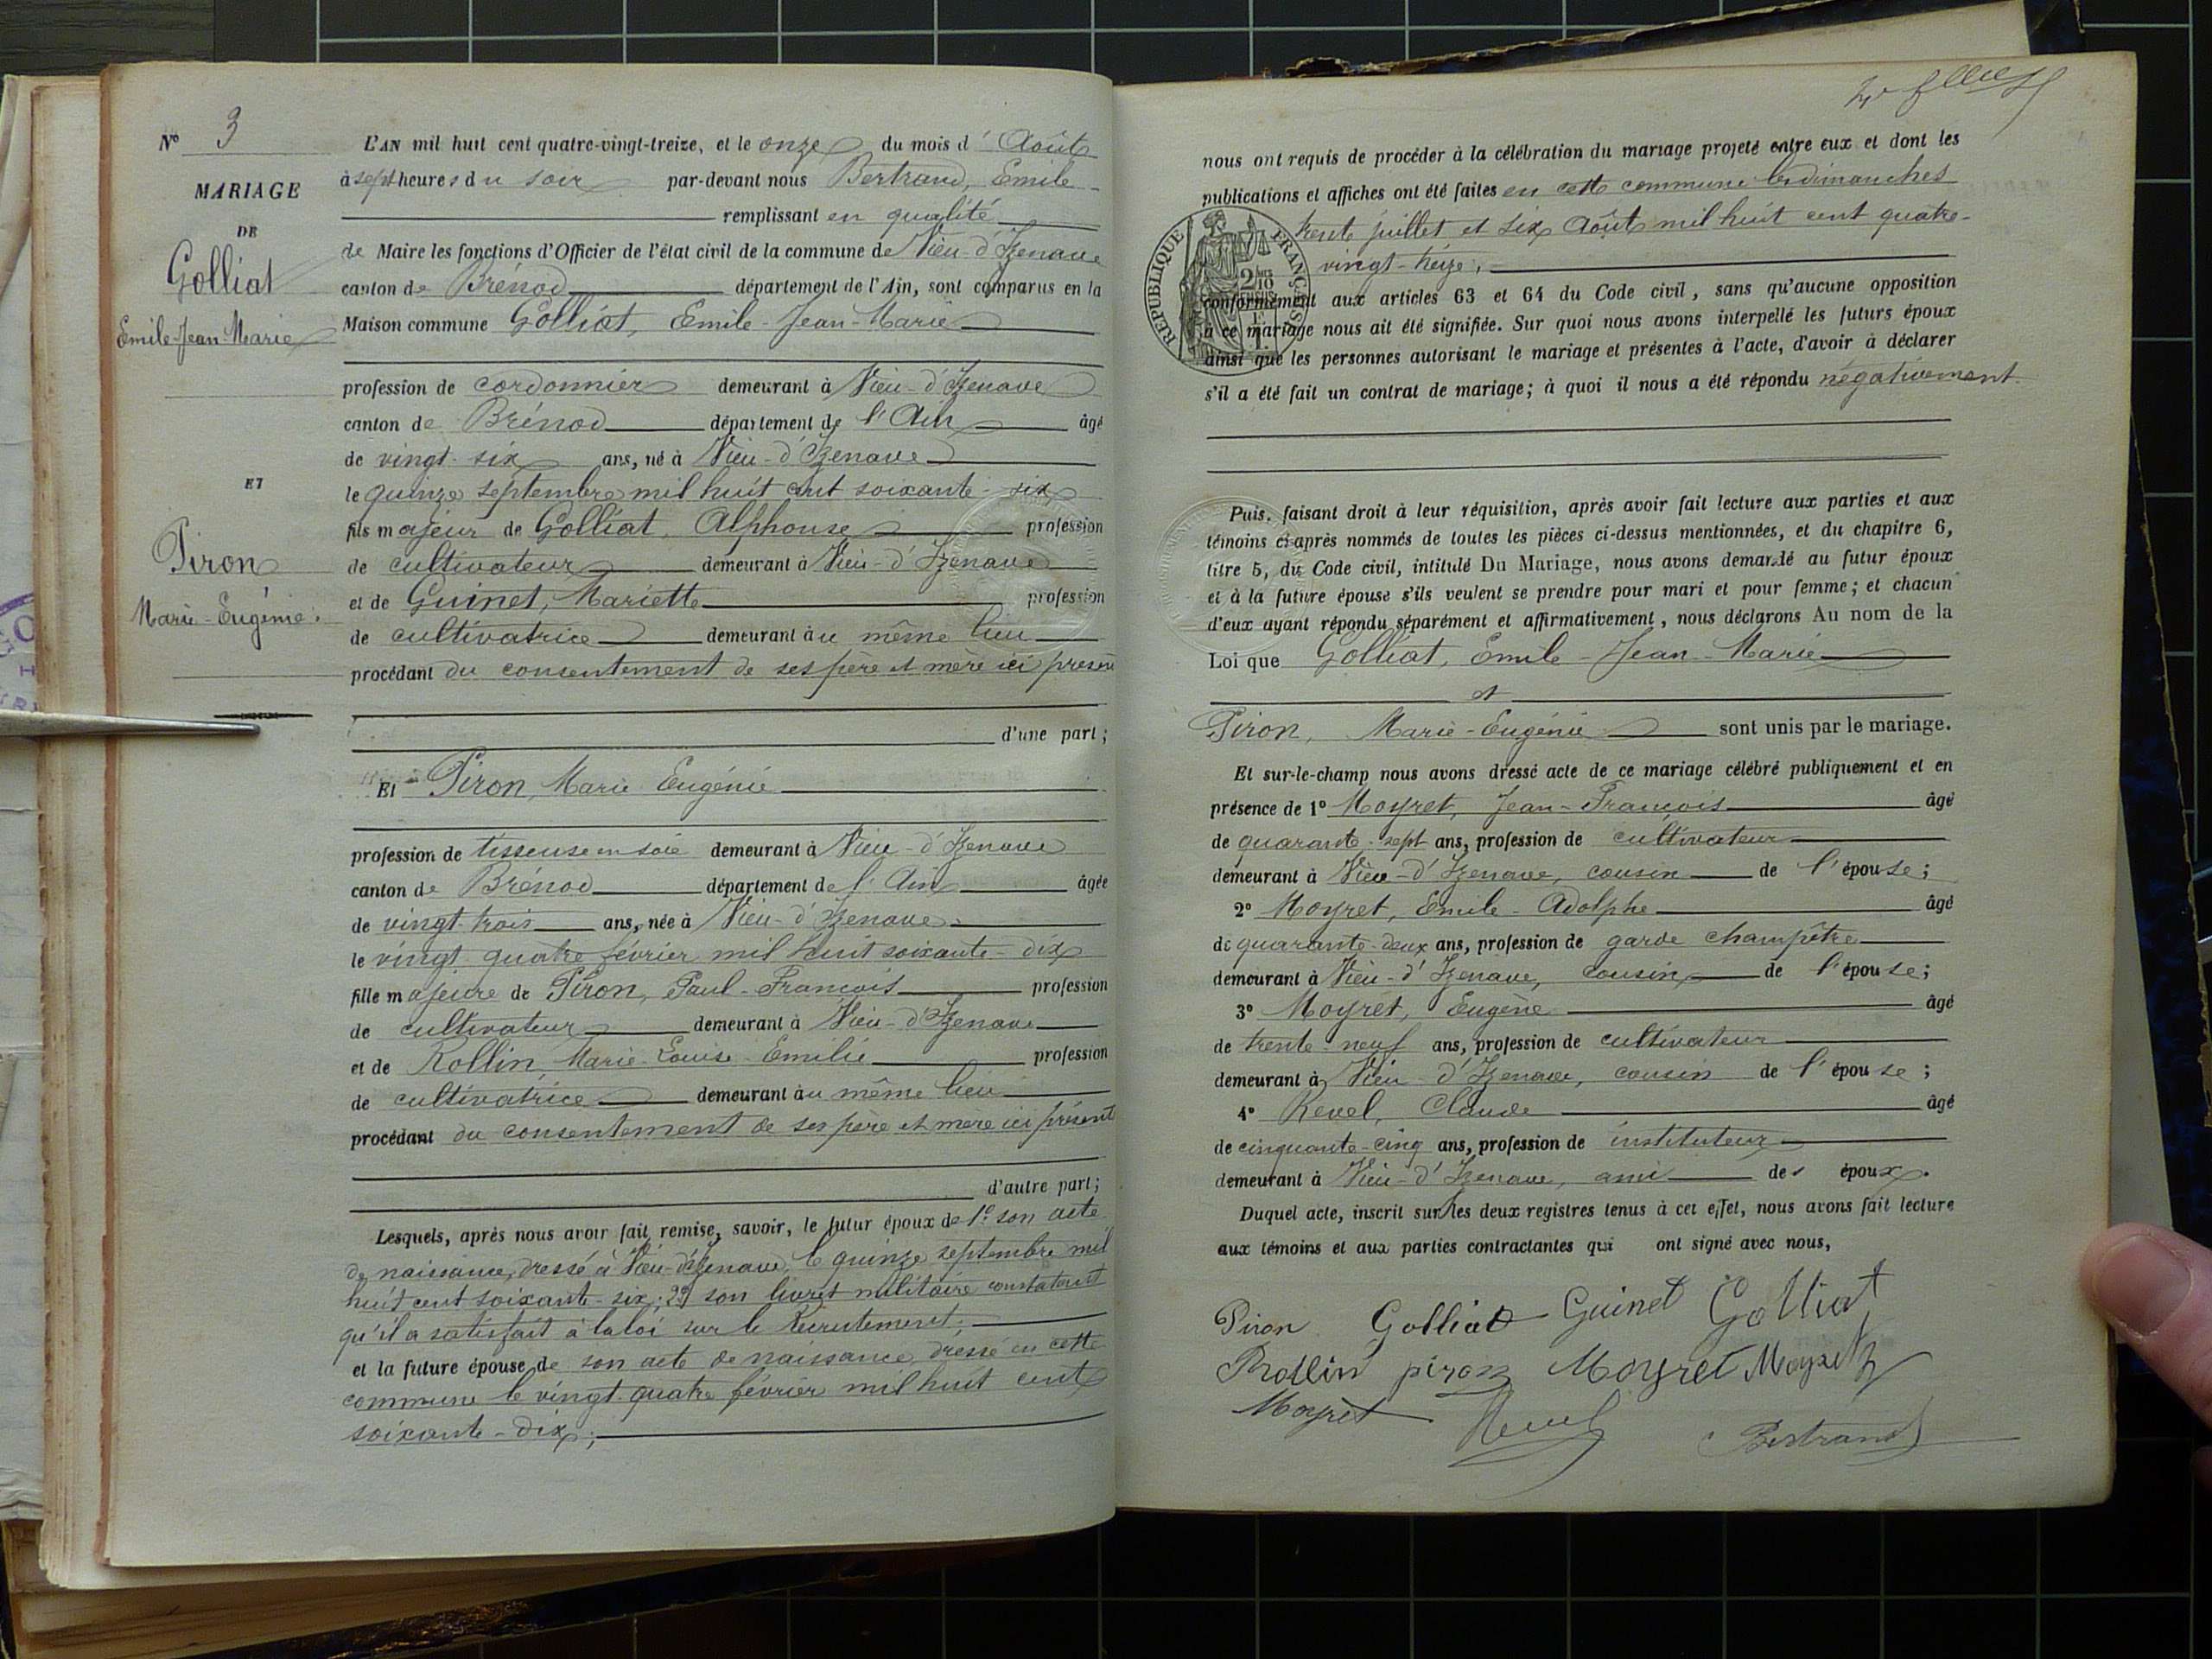 N° 3
MARIAGE
DE
Golliat
Emile-Jean-Marie
ET
Piron
Marie-Eugénie.
L'AN mil huit cent quatre-vingt-treize, et le onze du mois d'Août
à sept heures du soir par-devant nous Bertrand, Emile
remplissant en qualité
de Maire les fonctions d'Officier de l'état civil de la commune de Vieu-d'Izenave
canton de Brénod département de l'Ain, sont comparus en la
Maison commune Golliat, Emile-Jean-Marie
profession de cordonnier demeurant à Vieu-d'Izenave
canton de Brénod département de l'Ain âgé
de vingt-six ans, né à Vieu-d'Izenave
le quinze septembre mil huit cent soixante-six
fils majeur de Golliat, Alphonse profession
de cultivateur demeurant à Vieu-d'Izenave
et de Guinet, Mariette profession
de cultivatrice demeurant au même lieu
procédant du consentement de ses père et mère ici présent
d'une part;
Et Piron, Marie Eugénie
profession de tisseuse en soie demeurant à Vieu-d'Izenave
canton de Brénod département de l'Ain âgée
de vingt-trois ans, née à Vieu-d'Izenave
le vingt-quatre février mil huit soixante-dix
fille majeure de Piron, Paul-François profession
de cultivateur demeurant à Vieu-d'Izenave
et de Rollin, Marie-Louise-Emilie profession
de cultivatrice demeurant au même lieu
procédant du consentement de ses père et mère ici présent
d'autre part;
Lesquels, après nous avoir fait remise, savoir, le futur époux de 1° son acte
de naissance, dressé à Vieu-d'Izenave, le quinze septembre mil
huit cent soixante-six; 2° son livret militaire constatant
qu'il a satisfait à la loi sur le Recrutement;
et la future épouse, de son acte de naissance, dressé en cette
commune le vingt-quatre février mil huit cent
soixante-dix;
nous ont requis de procéder à la célébration du mariage projeté entre eux et dont les
publications et affiches ont été faites en cette commune les dimanches
trente juillet et six Août mil huit cent quatre-
vingt-treize,
conformément aux articles 63 et 64 du Code civil, sans qu'aucune opposition
à ce mariage nous ait été signifiée. Sur quoi nous avons interpellé les futurs époux
ainsi que les personnes autorisant le mariage et présentes à l'acte, d'avoir à déclarer
s'il a été fait un contrat de mariage; à quoi il nous a été répondu négativement.
RÉPUBLIQUE FRANÇAISE
2/10
Puis, faisant droit à leur réquisition, après avoir fait lecture aux parties et aux
témoins ci-après nommés de toutes les pièces ci-dessus mentionnées, et du chapitre 6,
titre 5, du Code civil, intitulé Du Mariage, nous avons demandé au futur époux
et à la future épouse s'ils veulent se prendre pour mari et pour femme; et chacun
d'eux ayant répondu séparément et affirmativement, nous déclarons Au nom de la
Loi que Golliat, Emile-Jean-Marie
et
Piron, Marie-Eugénie sont unis par le mariage.
Et sur-le-champ nous avons dressé acte de ce mariage célébré publiquement et en
présence de 1° Moyret, Jean-François âgé
de quarante-sept ans, profession de cultivateur
demeurant à Vieu-d'Izenave, cousin de l'épouse;
2° Moyret, Emile-Adolphe âgé
de quarante-deux ans, profession de garde champêtre
demeurant à Vieu-d'Izenave, cousin de l'épouse;
3° Moyret, Eugène âgé
de trente-neuf ans, profession de cultivateur
demeurant à Vieu-d'Izenave, cousin de l'épouse;
4° Revel, Claude âgé
de cinquante-cinq ans, profession de instituteur
demeurant à Vieu-d'Izenave, ami des époux.
Duquel acte, inscrit sur les deux registres tenus à cet effet, nous avons fait lecture
aux témoins et aux parties contractantes qui ont signé avec nous,
Piron Golliat Guinet Golliat
Rollin piron Moyret Moyret
Moyret Revel Bertrand